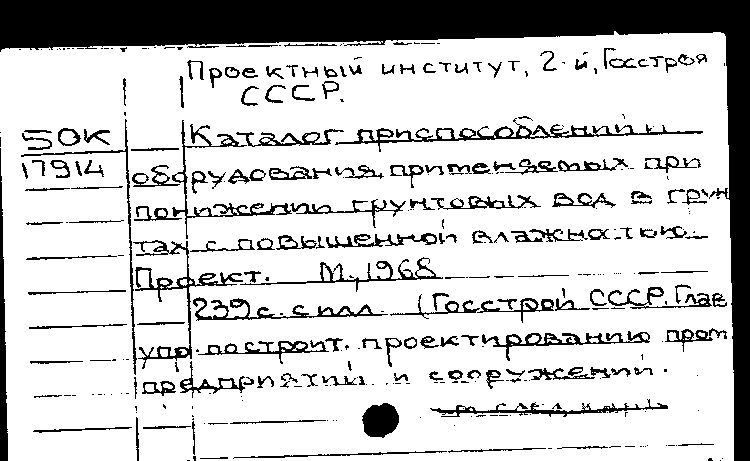 Проектный институт, 2-й, Госстроя
СССР.
50К
Каталог приспособлений и
17914
оборудования, применяемых при
понижении грунтовых вод в грун
тах с повышенной влажностью.
Проект. М., 1968
239 с. с илл. (Госстрой СССР. Глав
упр. по строит. проектированию пром
предприятий и сооружений.